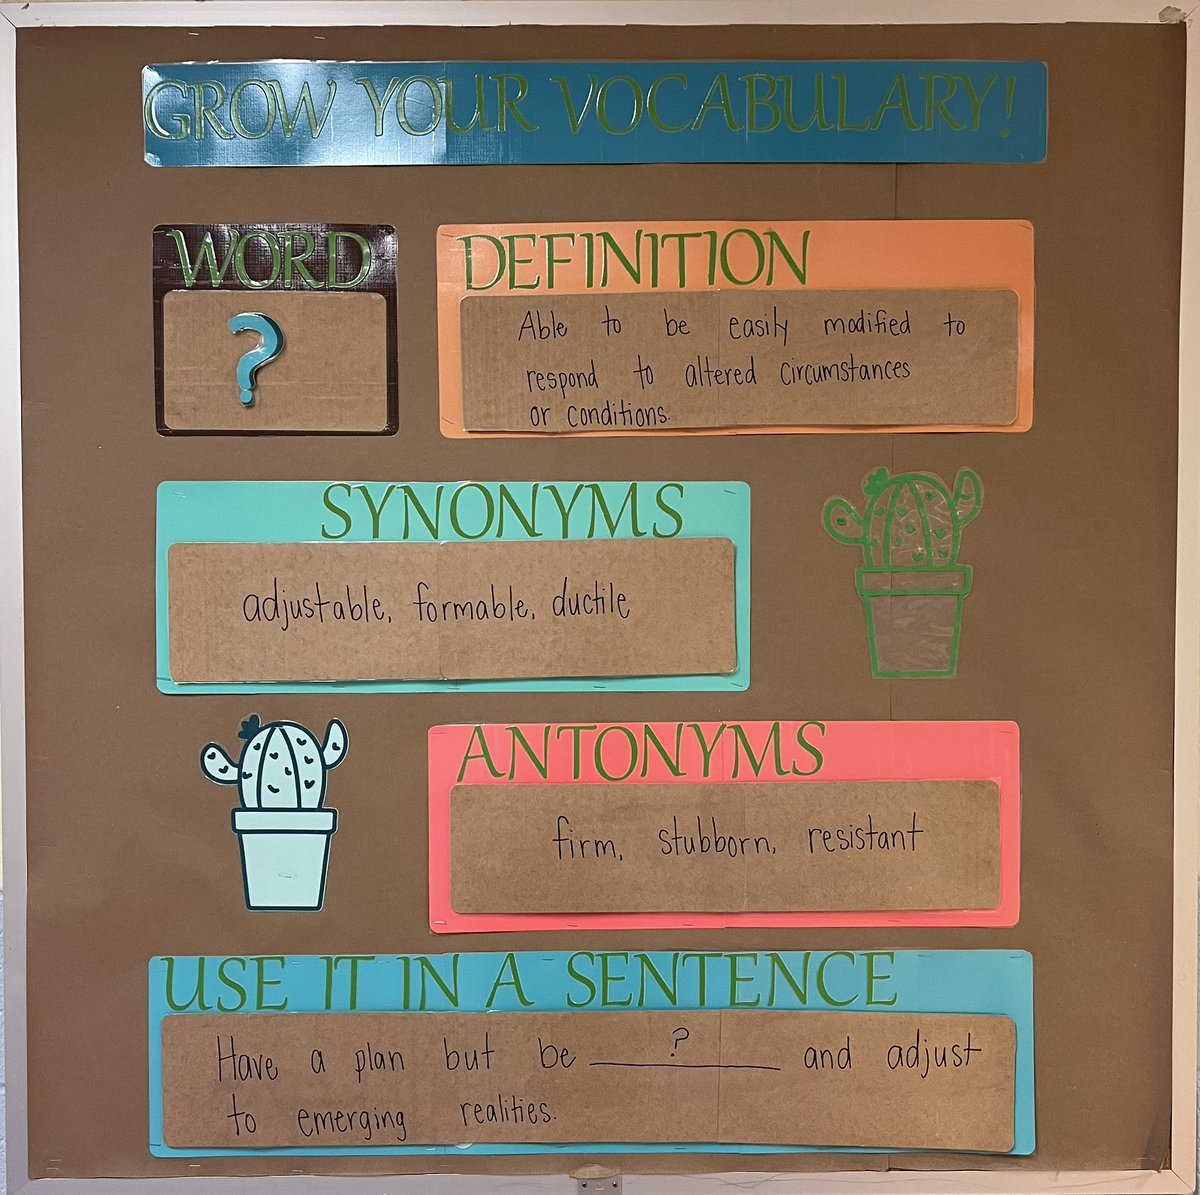 GROW YOUR VOCABULARY!
WORD
?
DEFINITION
Able to be easily modified to
respond to altered circumstances
or conditions.
SYNONYMS
adjustable, formable, ductile
ANTONYMS
firm, stubborn, resistant
USE IT IN A SENTENCE
Have a plan but be ___?___ and adjust
to emerging realities.